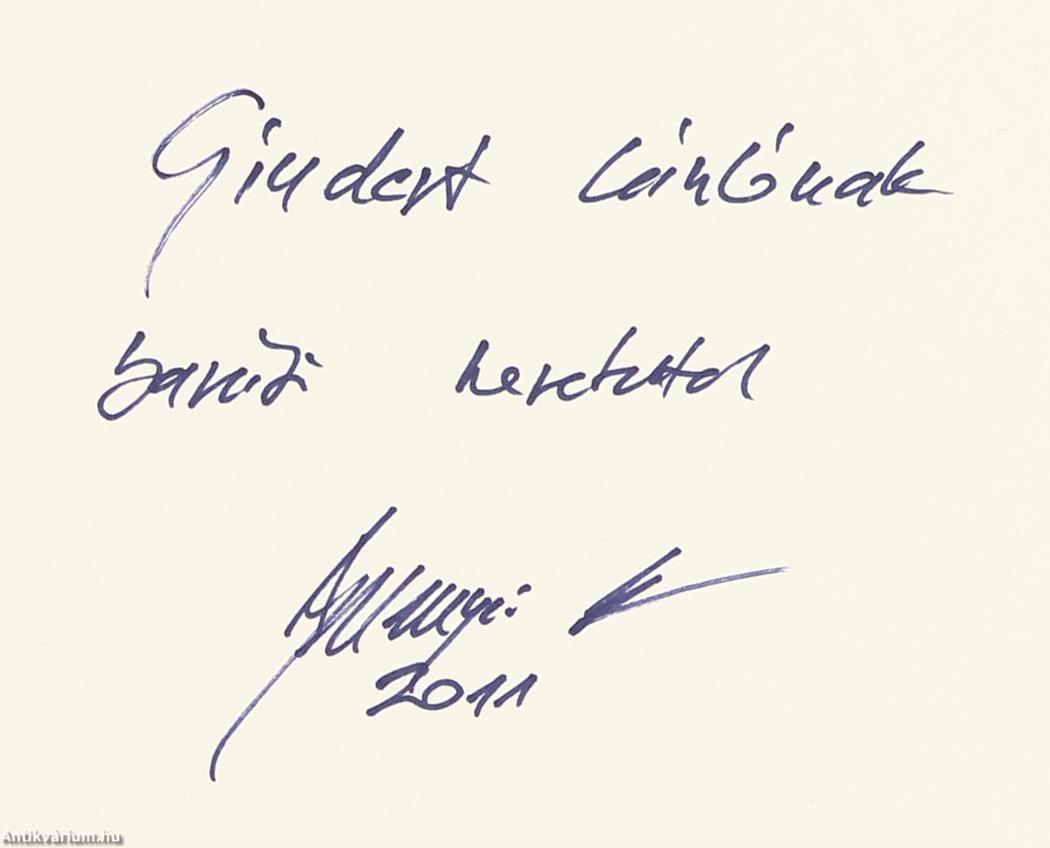 Gindert Lászlónak
baráti szeretettel
2011
Antikvárium.hu